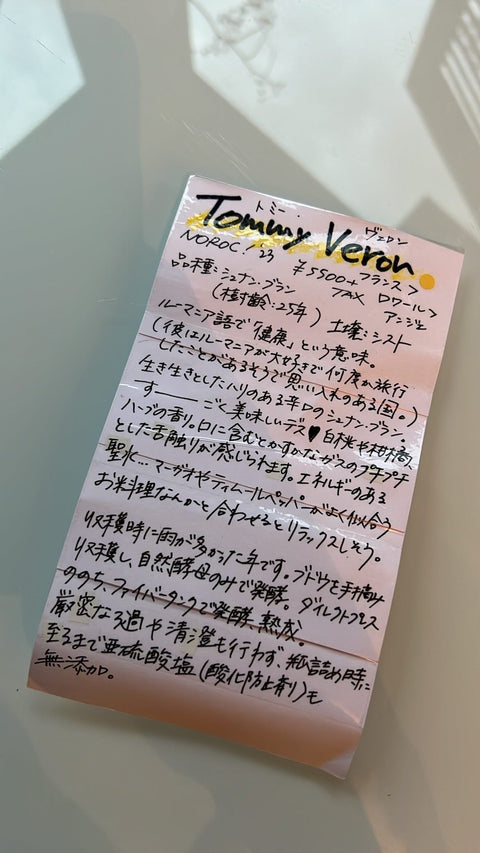 トミー・ヴェロン
Tommy Veron
NOROC! '23 ¥5500+TAX フランス>ロワール>アンジェ
品種:シュナン・ブラン
(樹齢:25年) 土壌:シスト
ルーマニア語で「健康」という意味。
(彼はルーマニアが大好きで何度か旅行
したことがあるそうで思い入れのある国。)
生き生きとしたハリのある辛口のシュナン・ブラン。
すーーーごく美味しいデス♥白桃や柑橘、
ハーブの香り。口に含むとかすかなガスのプチプチ
とした舌触りが感じられます。エネルギーのある
聖水…マーガオやティムールペッパーがよく似合う
お料理なんかと合わせるとリラックスしそう。
収穫時に雨が多かった年です。ブドウを手摘み
収穫し、自然酵母のみで発酵。ダイレクトプレス
ののち、ファイバータンクで発酵、熟成。
厳密なろ過や清澄も行わず、瓶詰め時に
至るまで亜硫酸塩(酸化防止剤)も
無添加。